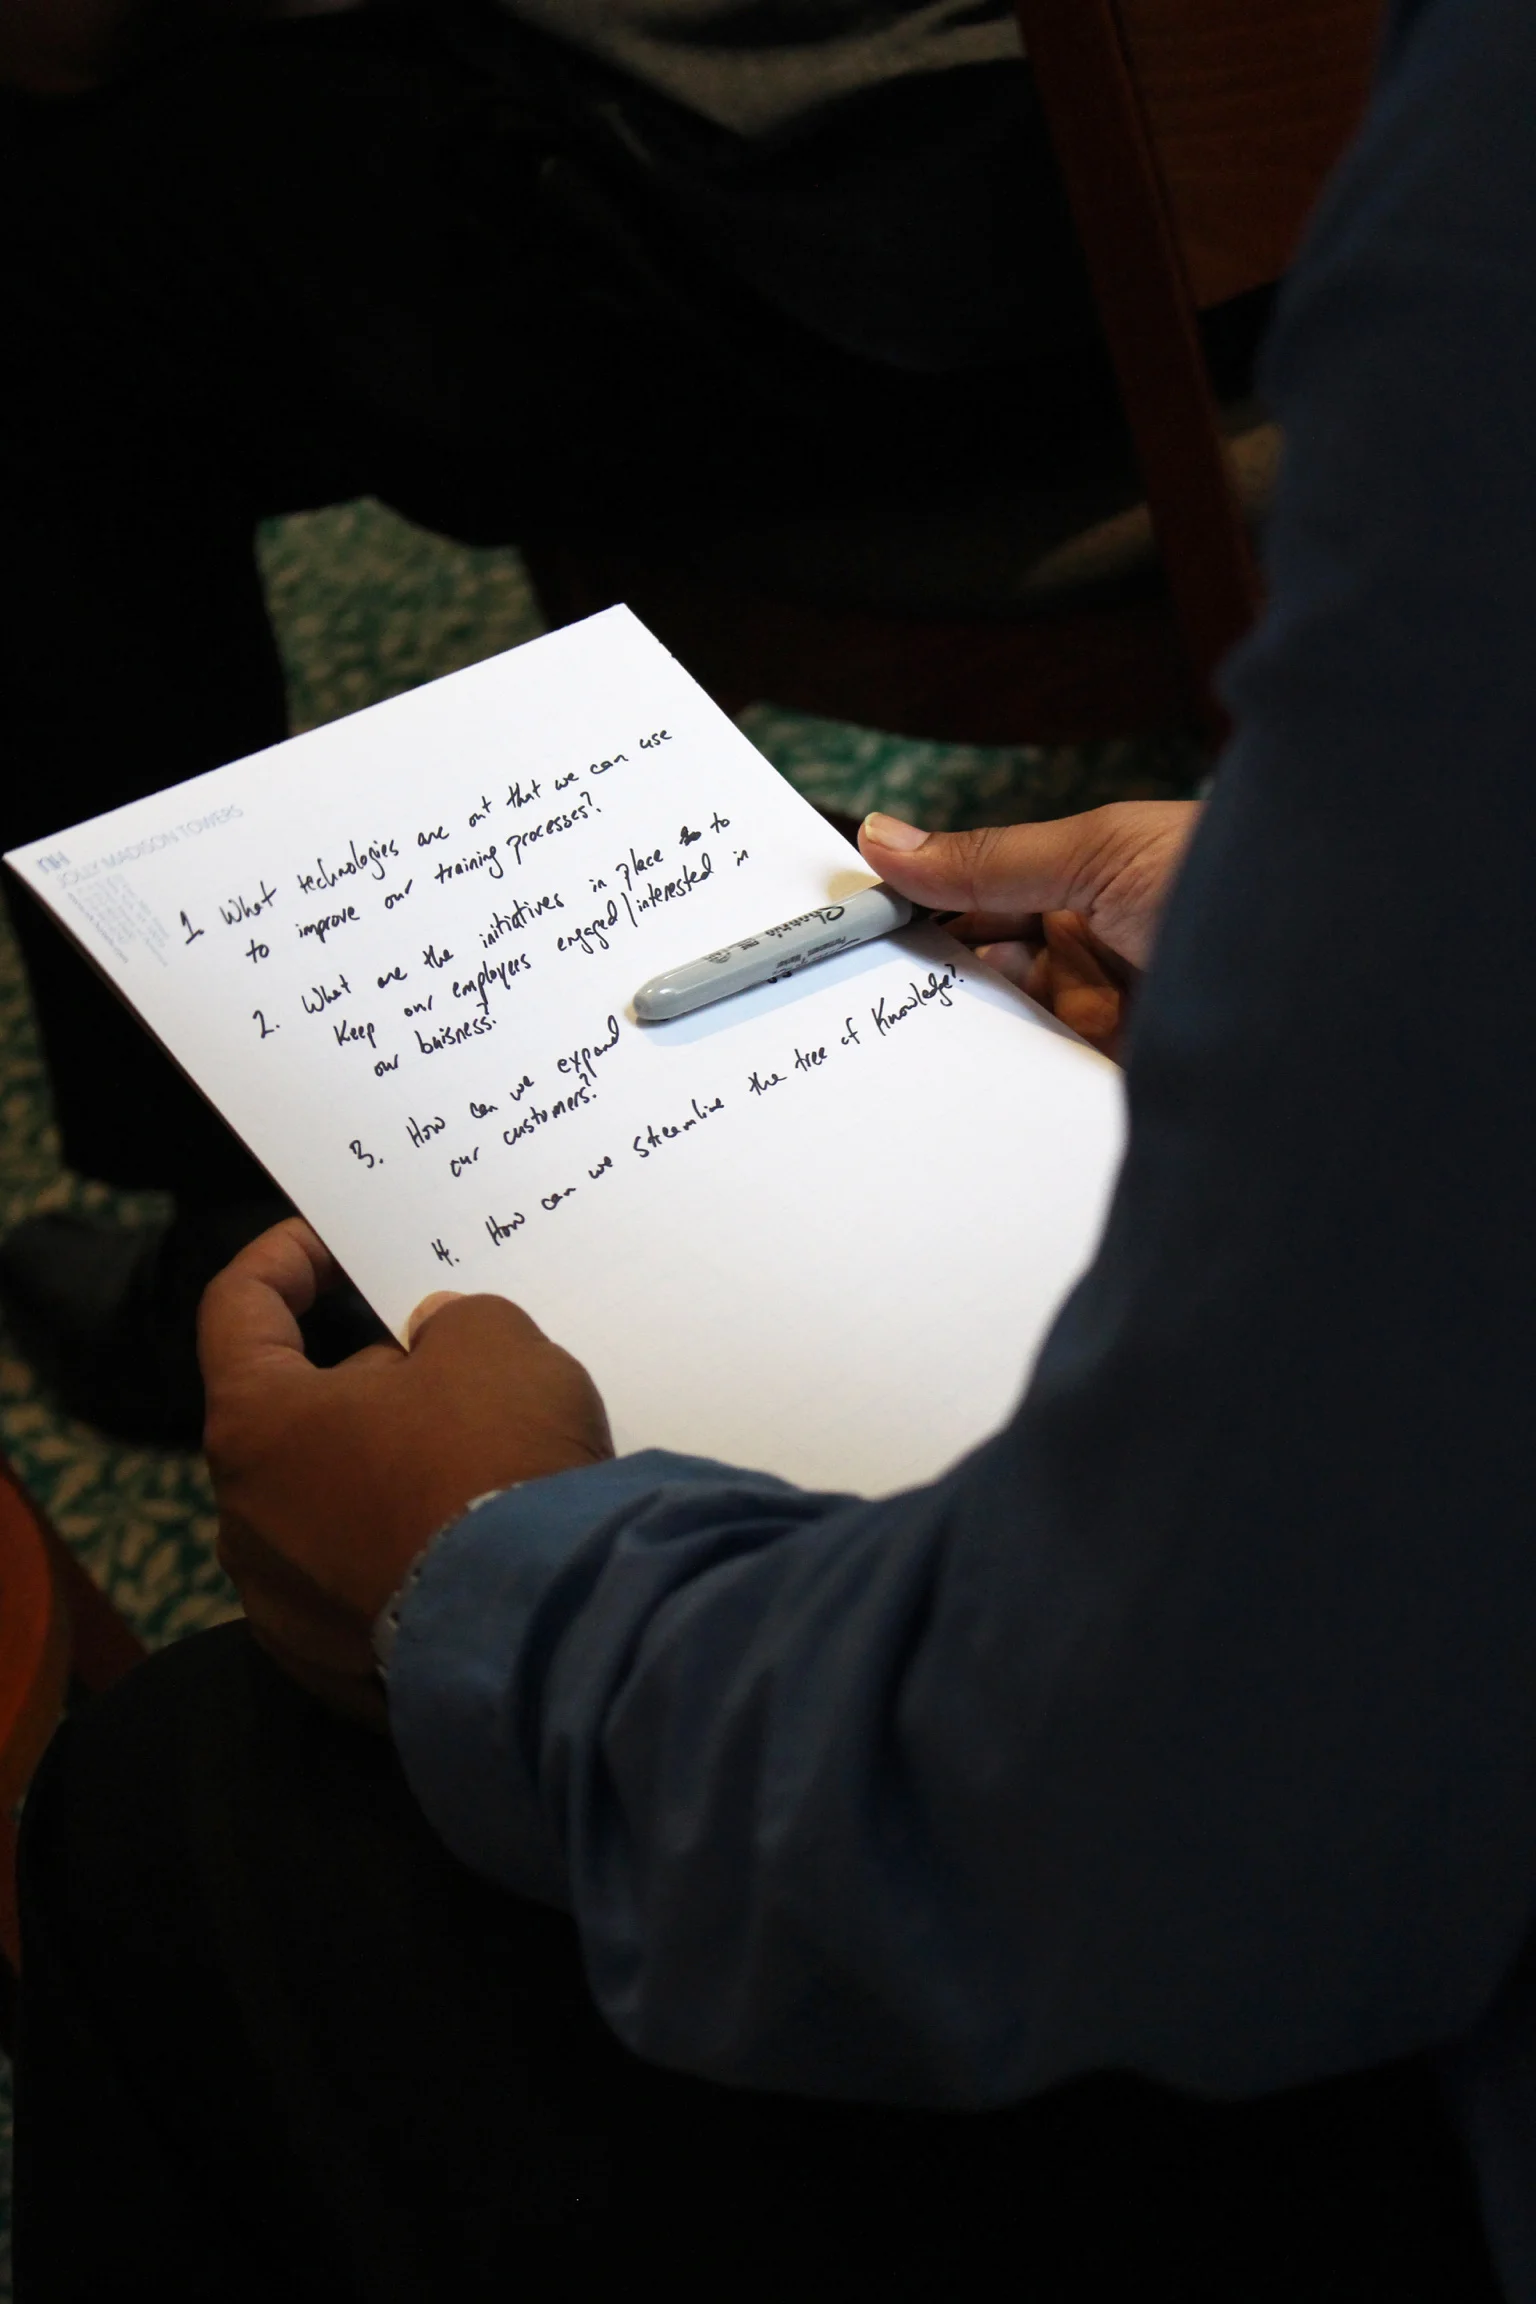 NH
JOLLY MADISON TOWERS
1 What technologies are out that we can use
to improve our training processes?
2. What are the initiatives in place to
Keep our employees engaged/interested in
our buisness?
3. How can we expand
our customers?
4. How can we streamline the tree of Knowledge?
Sharpie
FINE
Permanent Marker